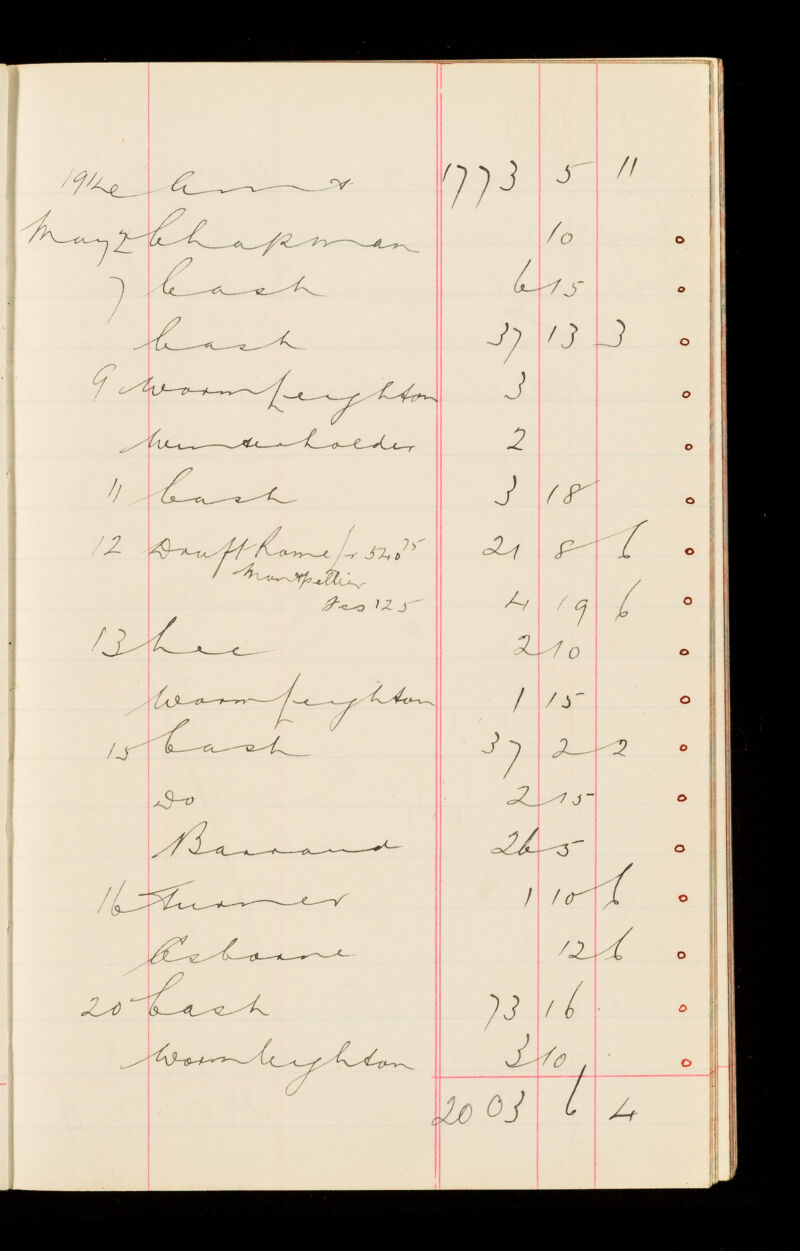 1912 Amnt 1773 5 11
May 2 Chapman 10
7 Cash 6 15
Cash 37 13 3
9 Wormleighton 3
2
11 Cash 3 18
12 Draft Rome fr 540 75 21 8 6
Montpellier
Fcs 125 4 19 6
13 Lee 2 10
Wormleighton 1 15
15 Cash 37 2 2
Do 2 15
Barraud 26 5
16 Turner 1 10 6
Osborne 12 6
20 Cash 73 16
Wormleighton 3 10
2003 6 4